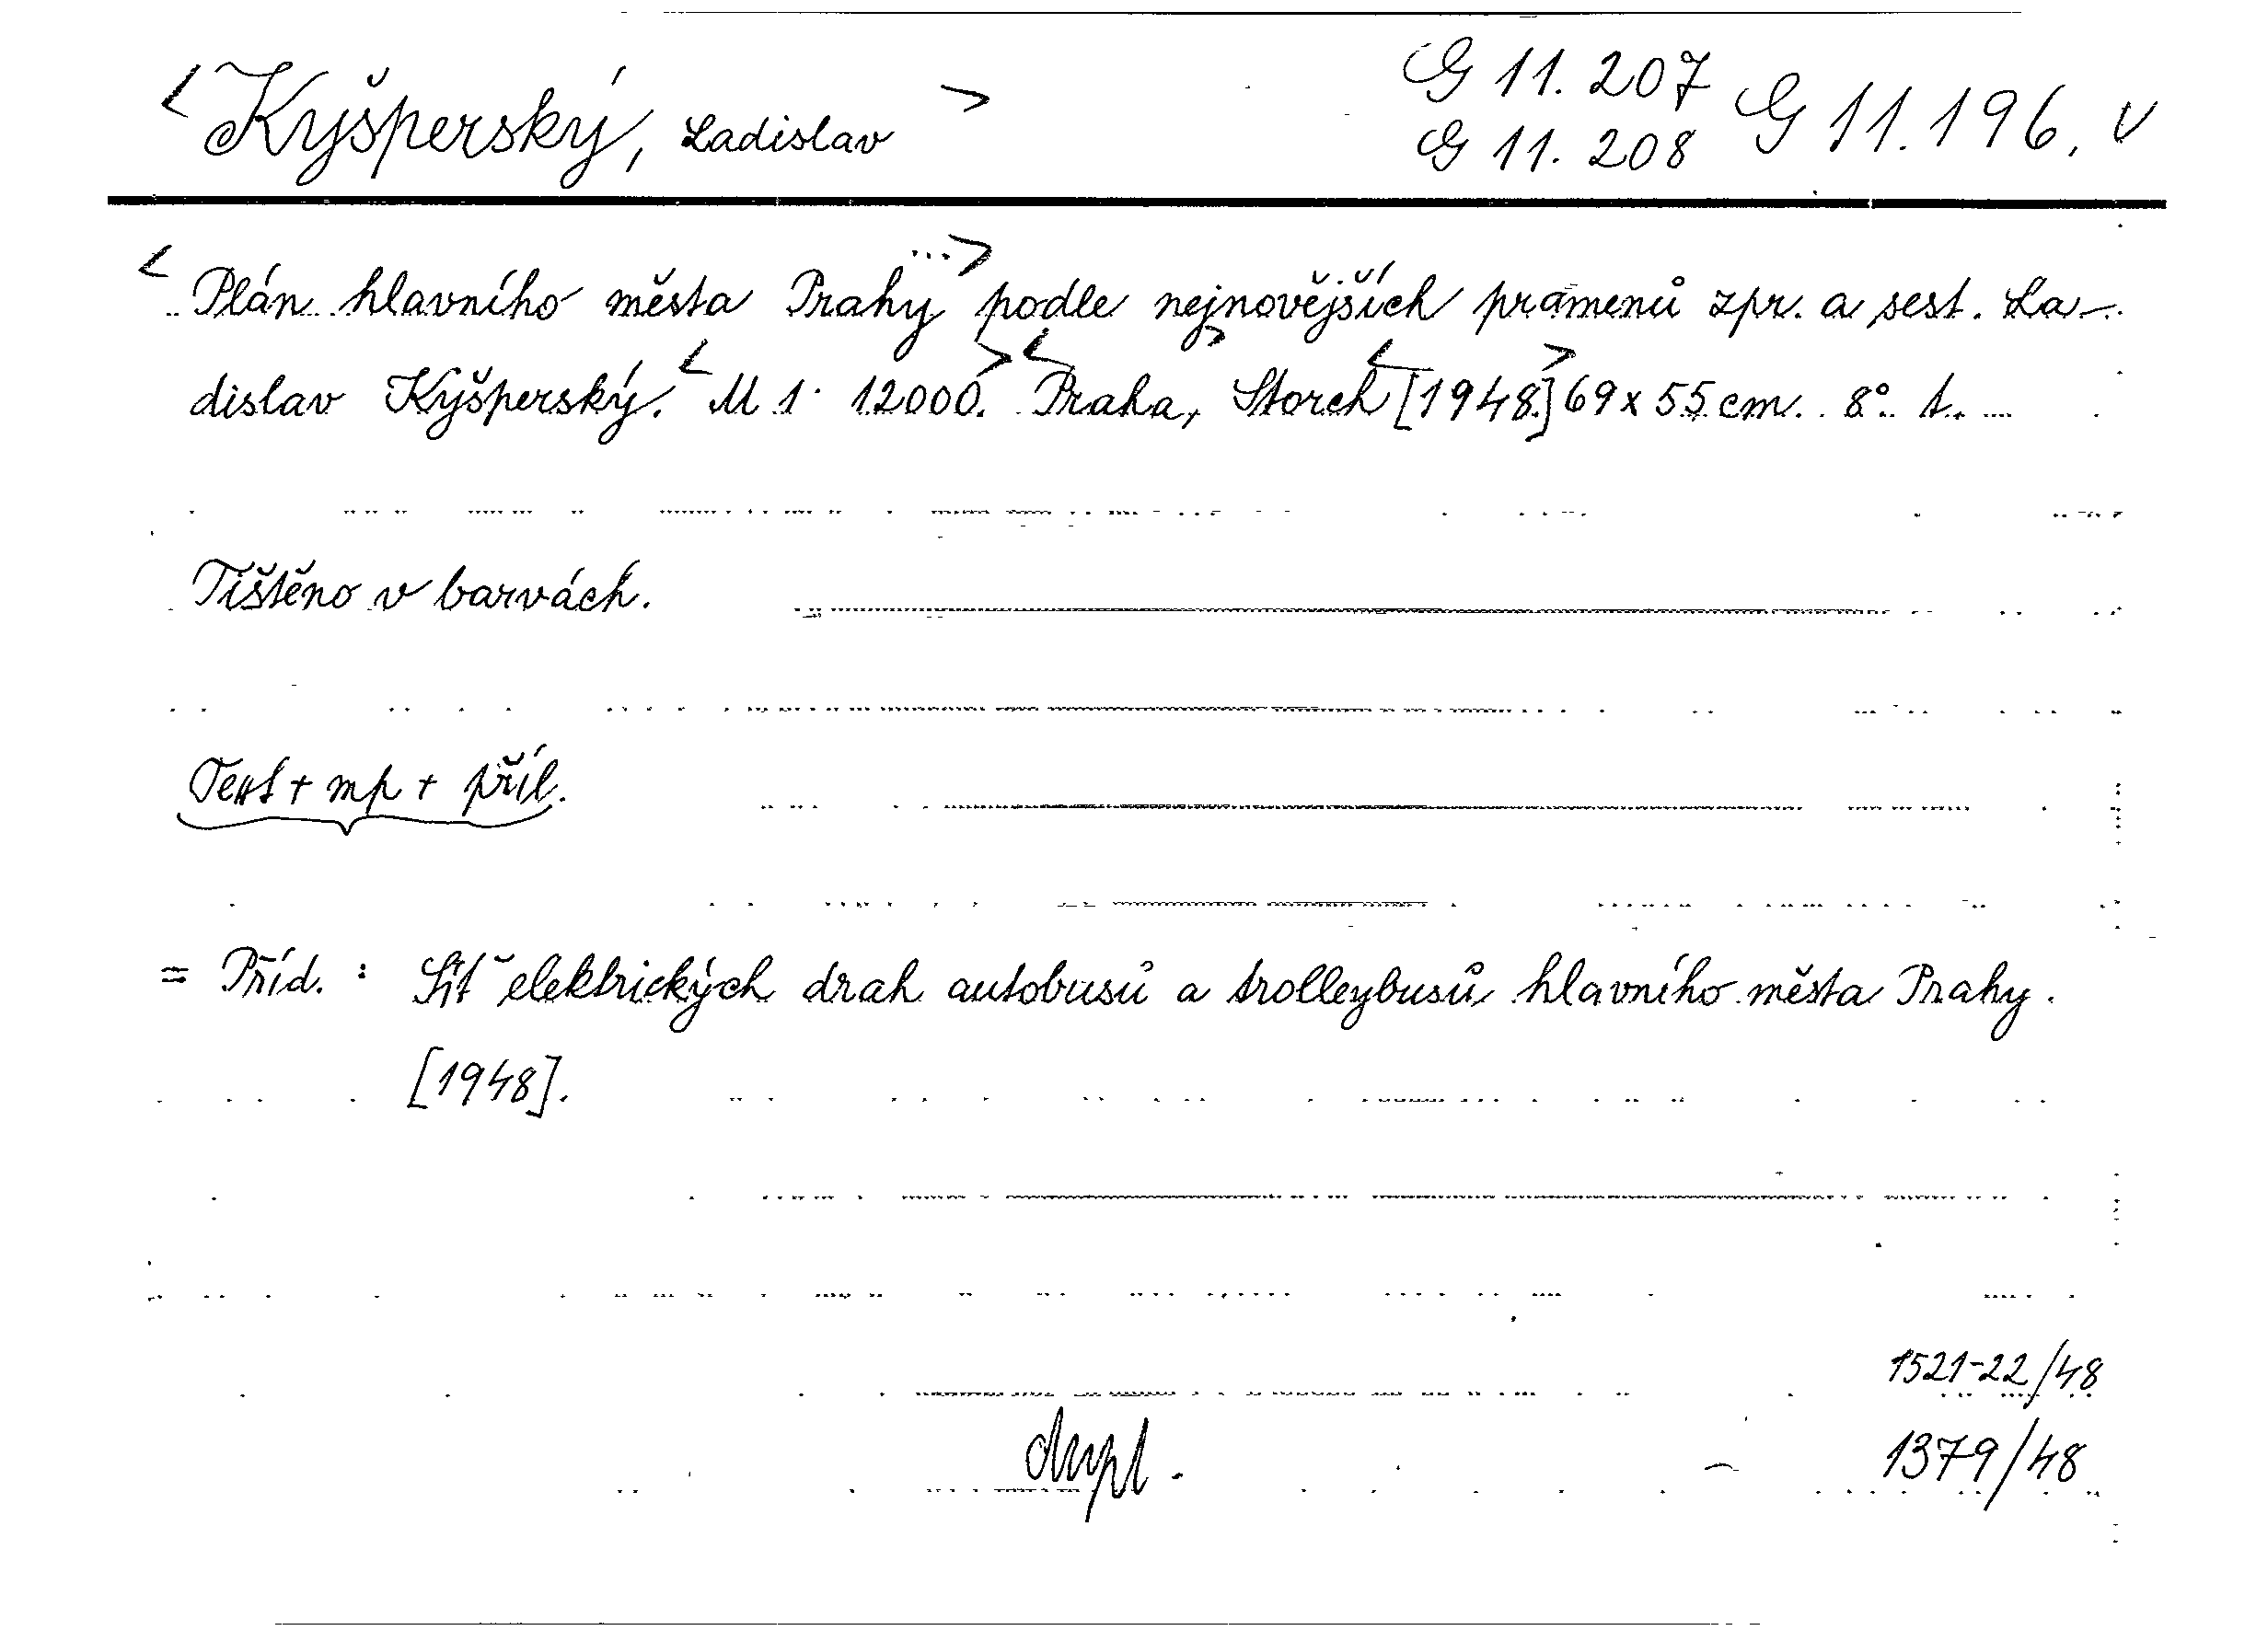 <Kyšperský, Ladislav>
G 11.207
G 11.208
G 11.196, v
<Plán hlavního města Prahy ...> podle nejnovějších pramenů zpr. a sest. La-
dislav Kyšperský. <M 1: 12000.> <Praha, Storch <[1948.]> 69 x 55 cm. 8° t.
Tištěno v barvách.
Text + mp + příl.
= Příd. : Síť elektrických drah autobusů a trolleybusů hlavního města Prahy.
[1948].
1521-22/48
dupl. 1379/48